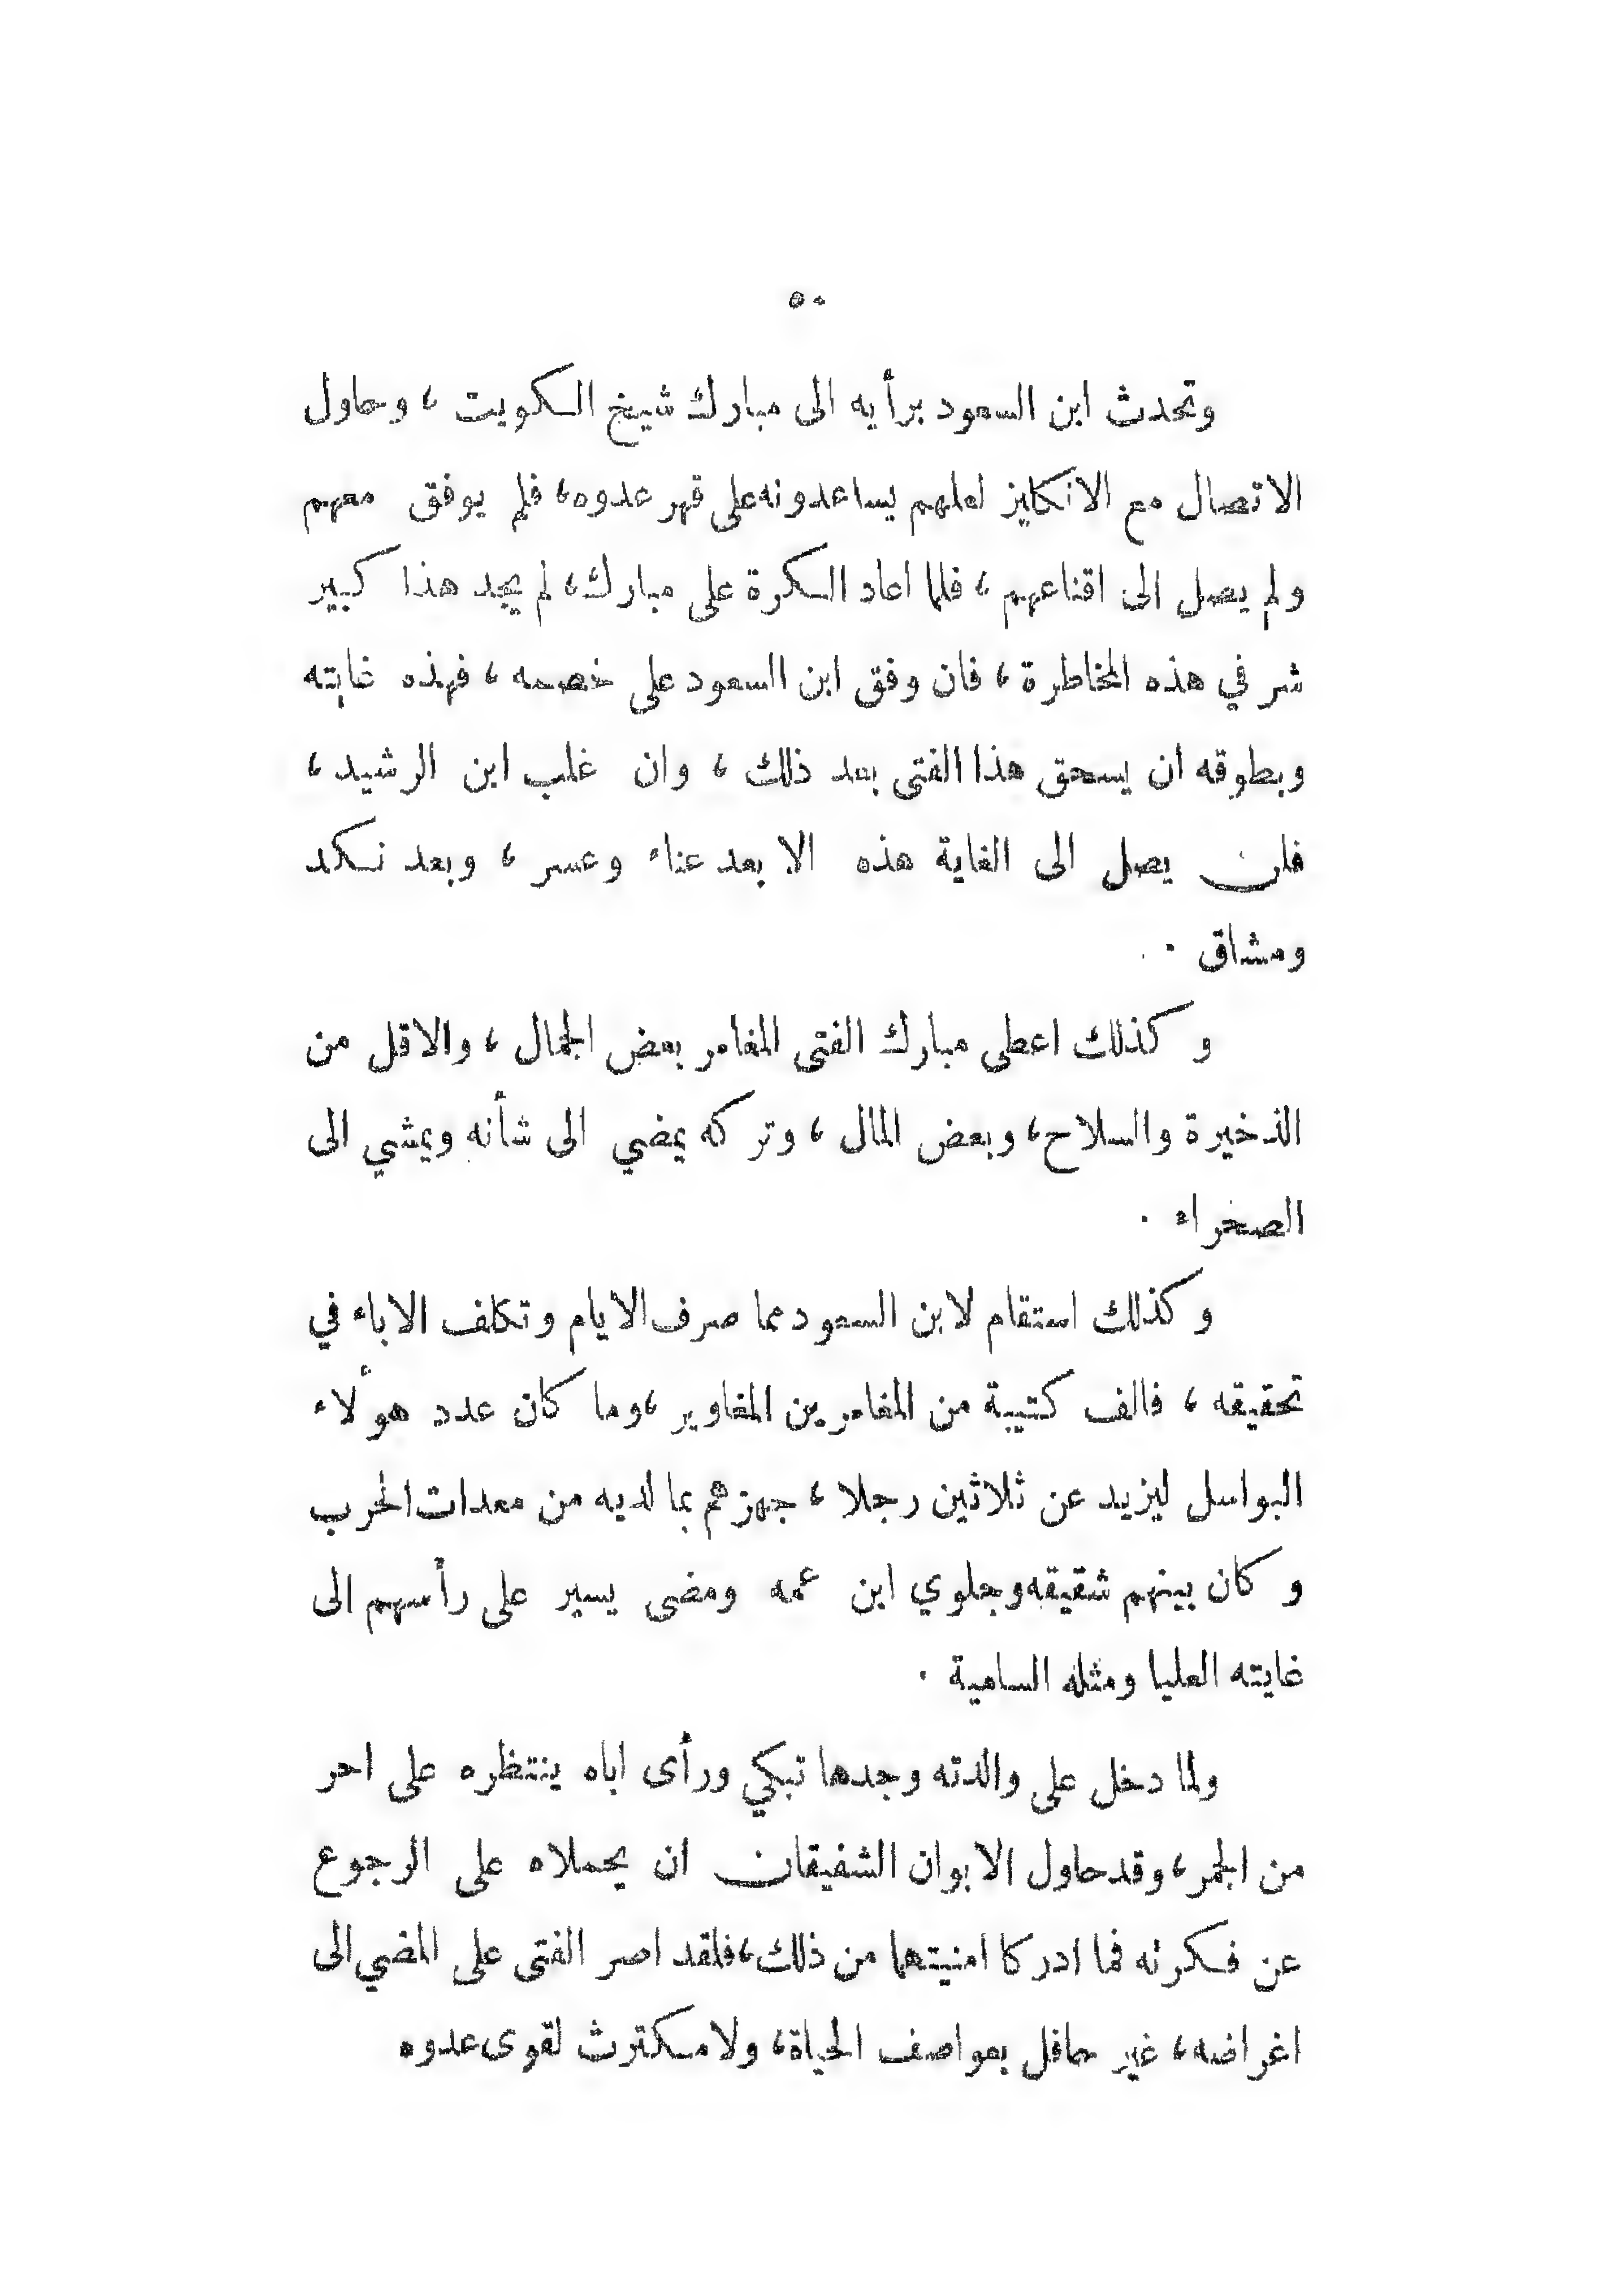 ٥٠
وتحدث ابن السعود برأيه الى مبارك شيخ الكويت ، وحاول
الاتصال مع الانكليز لعلهم يساعدونه على قهر عدوه، فلم يوفق معهم
ولم يصل الى اقناعهم ، فلما اعاد الكرة على مبارك، لم يجد هذا كبير
شر في هذه المخاطرة ، فان وفق ابن السعود على خصمه ، فهذه غايته
وبطوقه ان يسحق هذا الفتى بعد ذلك ، وان غلب ابن الرشيد ،
فلن يصل الى الغاية هذه الا بعد عناء وعسر ، وبعد نكد
ومشاق .
وكذلك اعطى مبارك الفتى المغامر بعض الجمال ، والاقل من
الذخيرة والسلاح، وبعض المال ، وتركه يمضي الى شأنه ويمشي الى
الصخراء .
وكذلك استقام لابن السعود عما صرف الايام وتكلف الاباء في
تحقيقه ، فالف كتيبة من المغامرين المغاوير ،وما كان عدد هوألاء
البواسل ليزيد عن ثلاثين رجلا ، جهزهم بما لديه من معدات الحرب
وكان بينهم شقيقه وجلوي ابن عمه ومضى يسير على رأسهم الى
غايته العليا ومثله السامية .
ولما دخل على والدته وجدها تبكي ورأى اباه ينتظره على احر
من الجمر، وقد حاول الابوان الشفيقان ان يحملاه على الرجوع
عن فكرته فما ادركا امنيتهما من ذلك،فلقد اصر الفتى على المضي الى
اغراضه، غير حافل بعواصف الحياة، ولا مكترث لقوى عدوه